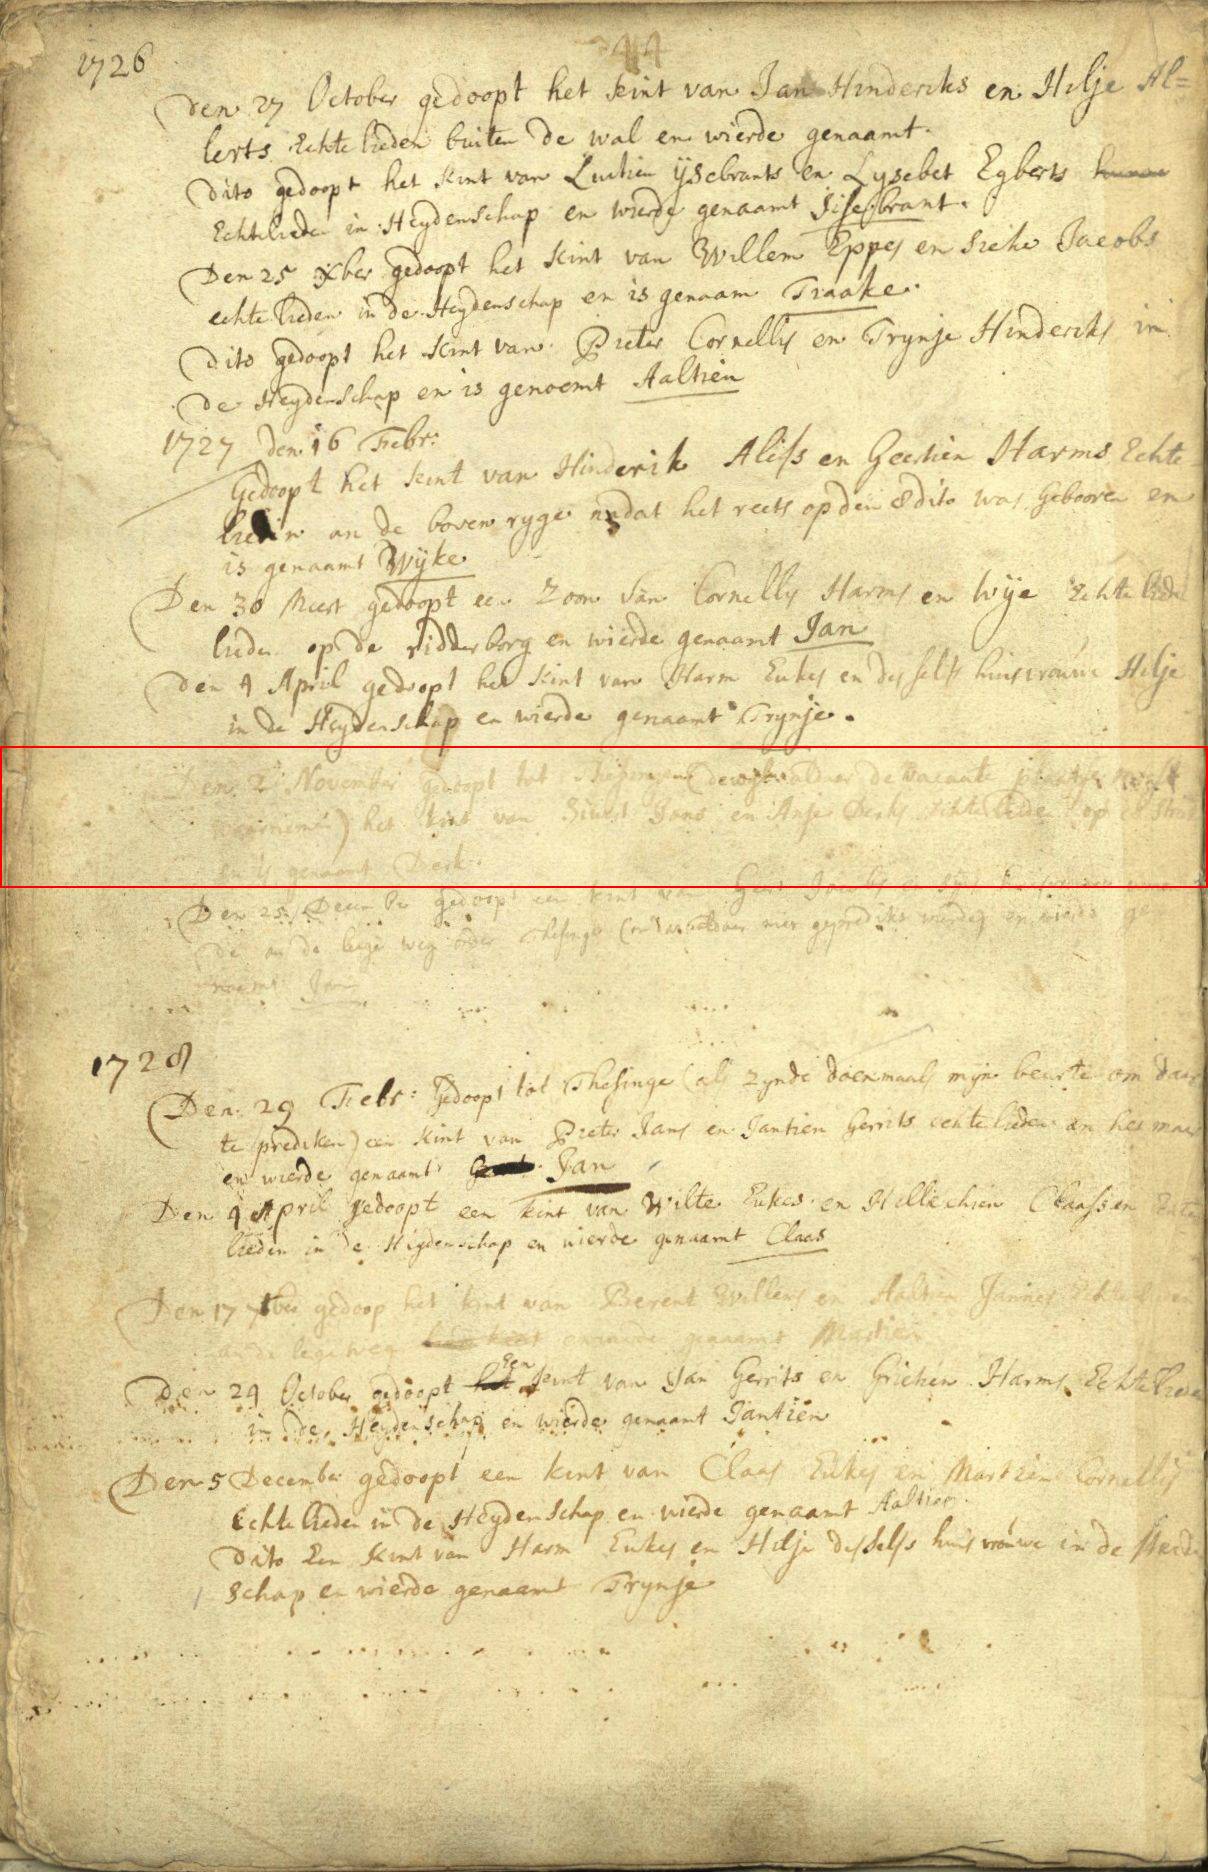 1726
344
Den 27 October gedoopt het kint van Jan Hindericks en Hilje Al=
lerts Echte lieden buiten de wal en wierde genaamt.
Dito gedoopt het kint van Luitien ijsebrants en Lysebet Egberts
Echtelieden in Heydenschap en wierde genaamt Sijsebrant.
Den 25 Xber gedoopt het kint van Willem Eppes en Jacobs
echte lieden in de Heydenschap en is genaam Traake.
Dito gedoopt het kint van Pieter Cornellis en Trynje Hindericks in
de Heydenschap en is genoemt Aaltien
1727 den 16 Febr:
Gedoopt het kint van Hinderik Alifs en Geertien Harms Echte
an de boven ryge nadat het reets op den 8 dito was Gebooren en
is genaamt Wijke
Den 30 Meert gedoopt een Zoon van Cornellis Harms en Wije Echte
lieden op de ridderborg en wierde genaamt Jan
Den 4 April gedoopt het kint van Harm Eukes en desselfs huisvrouwe Hilje
in de Heydenschap en wierde genaamt Trynje.
Den 2 November gedoopt tot (dewijl aldaar de vacante plaatse
waarnemen) het kint van Siwert Jans en Anje Derks Echte lieden op
en is genaamt Derk.
Den 25 December gedoopt een kint van Gert Jacobs en sijn
de an de lege weg onder Thesinge aldaar niet geprediks wierde) en wierde ge
naamt Jan
1728
Den 29 Febr: Gedoopt tot Thesinge (als zynde doenmaals mijn beurte om daar
te prediken) een kint van Pieter Jans en Jantien Gerrits echte lieden an het maar
en wierde genaamt Jan
Den 4 April gedoopt een kint van Wilte Eukes en Hillechien Claassen Echte
lieden in de Heydenschap en wierde genaamt Claas
Den 17 7ber gedoop het kint van Berent Willems en Aaltien Jannes
an de lege weg en wierde genaamt Martien
Den 24 October gedoopt Een kint van Jan Gerrits en Grietien Harms Echte liede
in de Heydenschap en wierde genaamt Jantien
Den 5 December gedoopt een kint van Claas Eukes en Martien Cornellis
Echte lieden in de Heydenschap en wierde genaamt Aaltien.
Dito Een kint van Harm Eukes en Hilje desselfs huisvrouwe in de Heiden
schap en wierde genaamt Trynje